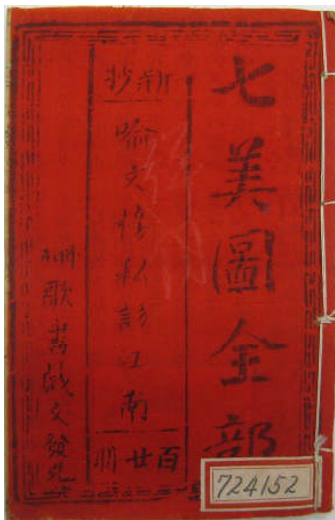 七美圖全部
新抄
喻文榜私訪江南
百廿冊
歌書戲文發兌
724152